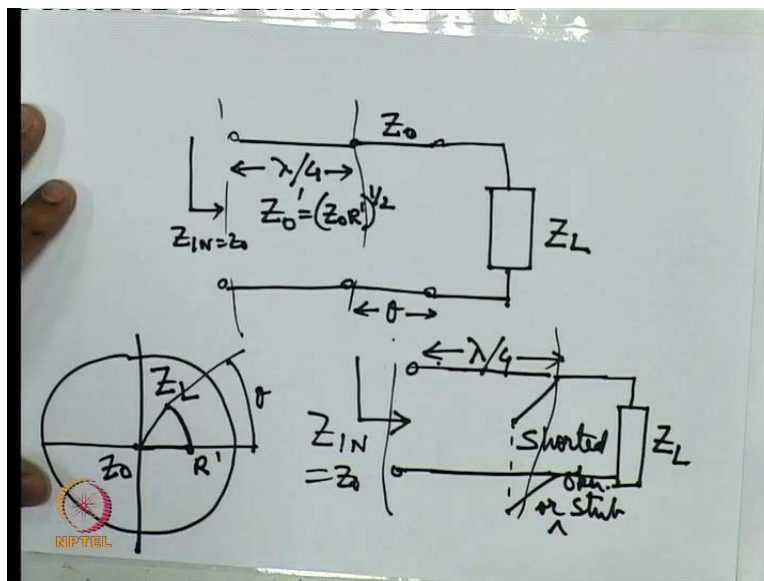 Z0
λ/4
Z0' = (Z0R')^1/2
ZIN = Z0
ZL
θ
λ/4
ZL
θ
Z0
R'
ZIN
= Z0
Shorted
ZL
open
or stub
^
NPTEL